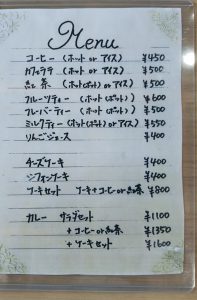 Menu
コーヒー (ホット or アイス) ¥450
カフェラテ (ホット or アイス) ¥500
紅茶 (ホット(ポット) or アイス) ¥500
フルーツティー (ホット(ポット)) ¥600
ハーブティー (ホット(ポット)) ¥500
ミルクティー (ホット(ポット) or アイス) ¥550
りんごジュース ¥400
チーズケーキ ¥400
シフォンケーキ ¥400
ケーキセット ケーキ+コーヒー or 紅茶 ¥800
カレー サラダセット ¥1100
+コーヒー or 紅茶 ¥1350
+ケーキセット ¥1600